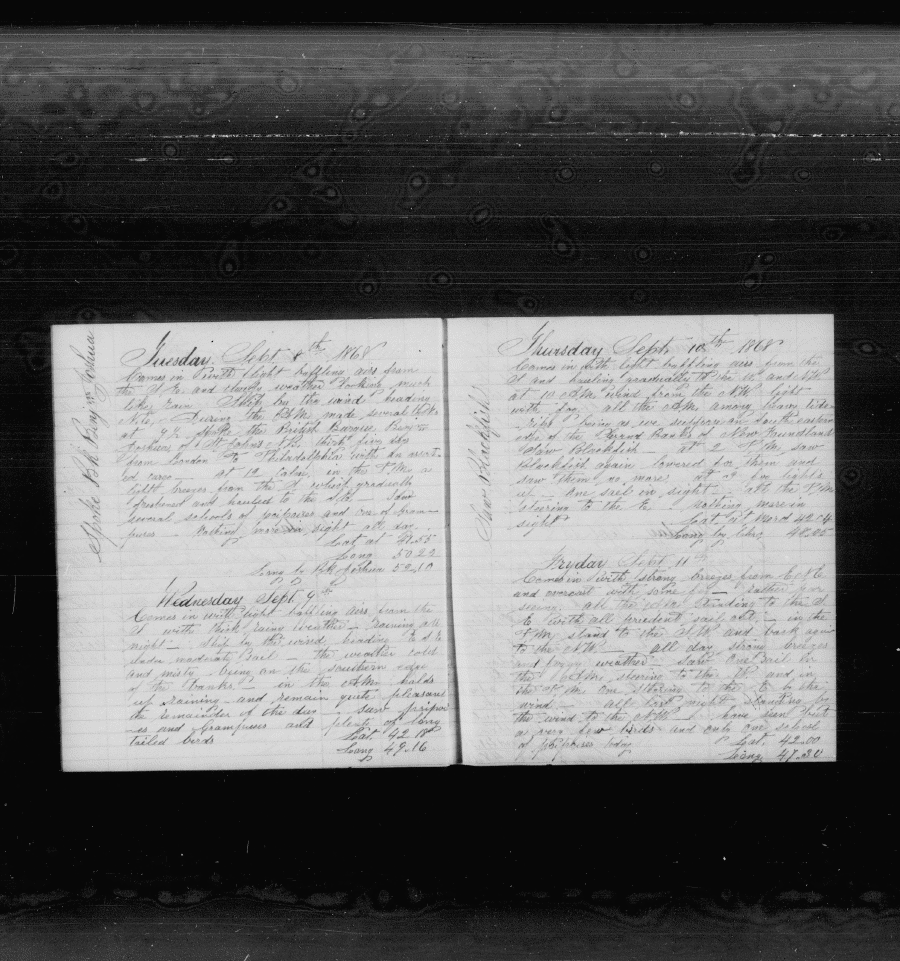 Spoke Bk Benjm Joshua
Tuesday Sept 8th 1868
Comes in with light baffling airs from
the S E and cloudy weather looking much
like rain Ship by the wind heading
During the P.M. made several
at the British Barque
St Johns N.B. thirty five days
from London To Philadelphia with an assort
ed cargo at 12 calm in the P.M. a
light breeze from the S which gradually
freshened and hauled to the Saw
several schools of porpoises and one of Gram-
puses Nothing more in sight all day
Lat at 41.55
Long 50 22
Long by Bk Joshua 52.10
Wednesday Sept 9th
Comes in with light baffling airs from the
S with thick rainy weather raining all
night Ship by the wind heading E S E
under moderate Sail the weather cold
and misty being on the southern edge
of the banks in the A.M. holds
up raining and remain quite pleasant
the remainder of the day saw porpoi
es and Grampuses and plenty of long
tailed birds Lat 42.18
Long 49.16
Saw Blackfish
Thursday Sept 10th 1868
Comes in with light baffling airs from the
S and hauling gradually to the W and NW
at 10 A.M. wind from the N.W. light
with fog all the A.M. among heavy tide
rips being as we suppose on South eastern
edge of the Grand banks of New Foundland
Saw Blackfish at 2 P.M. saw
Blackfish again lowered for them and
saw them no more at lights
up one sail in sight all the P.M.
steering to the E Nothing more in
sight Lat at Merd 42.04
Long by Chro 48.25
Fryday Sept 11th
Comes in with strong breezes from E N E
and overcast with some fog rather
all the standing to the S
E with all prudent sail out in the
A.M. stand to the N.W. and back again
to the N.W. all day strong breezes
and foggy weather Saw One Sail in
the A.M. steering to the W and in
the P.M. One steering to the E by the
wind all last night standing by
the wind to the N.W. have seen but
a very few birds and only one school
of porpoises today Lat. 42.00
Long 47.30